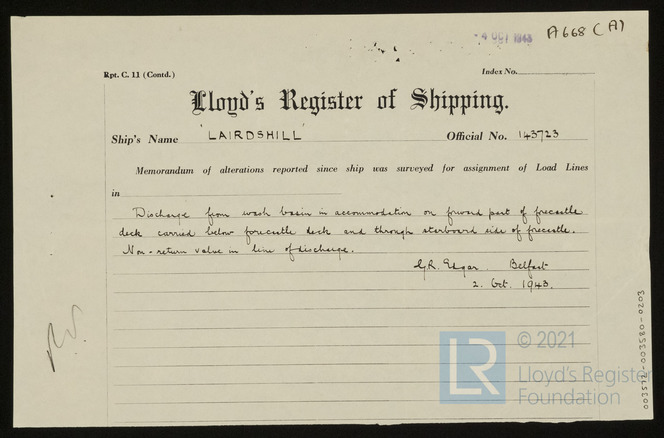 4 OCT 1943
A668 (A)
Rpt. C. 11 (Contd.)
Index No.
Lloyd's Register of Shipping.
Ship's Name 'LAIRDSHILL' Official No. 143723
Memorandum of alterations reported since ship was surveyed for assignment of Load Lines
in
Discharge from wash basin in accommodation on forward part of forecastle
deck carried below forecastle deck and through starboard side of forecastle.
Non-return valve in line of discharge.
G.R. Edgar. Belfast
2. Oct. 1943.
© 2021
LR
Lloyd's Register
Foundation
003572-003580-0203